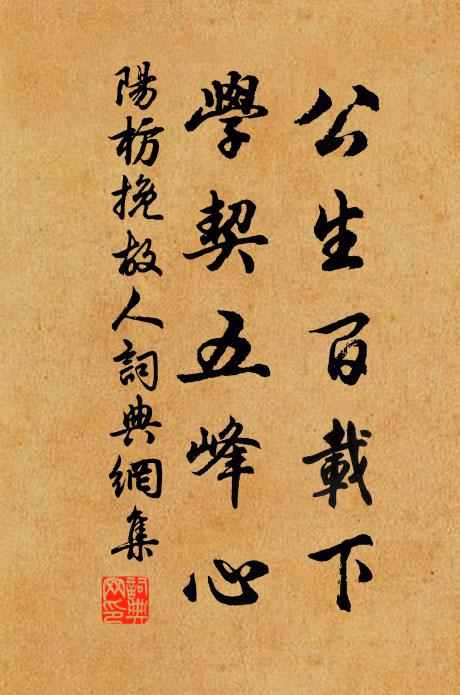 公生百載下
學契五峰心
陽枋挽故人詞典網集
詞典網印